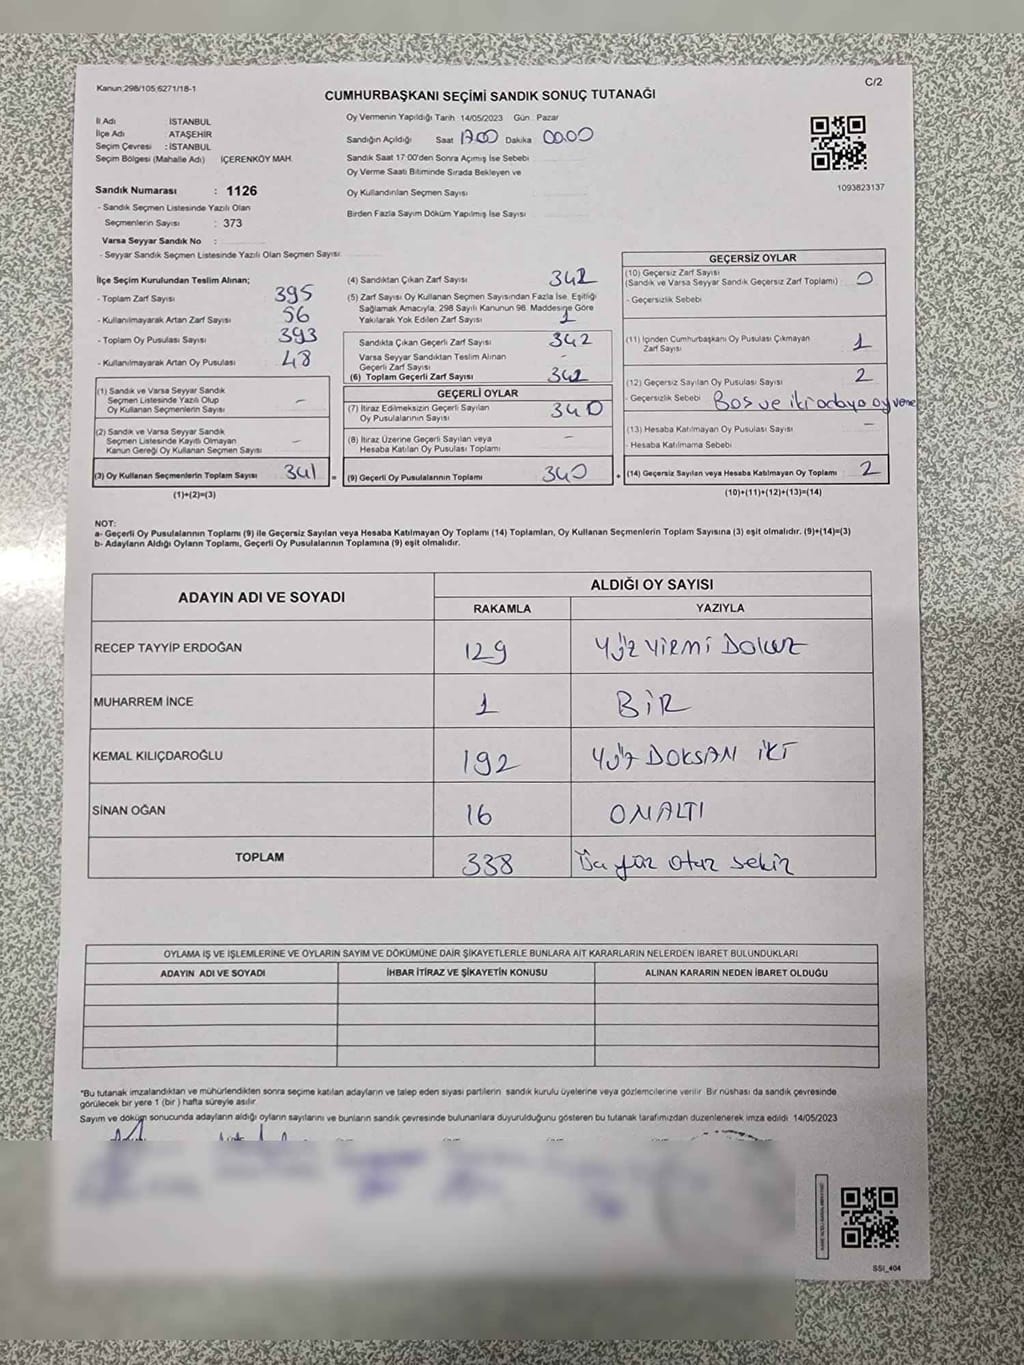 Kanun:298/105,6271/18-1
C/2
CUMHURBAŞKANI SEÇİMİ SANDIK SONUÇ TUTANAĞI
İl Adı : İSTANBUL
İlçe Adı : ATAŞEHİR
Seçim Çevresi : İSTANBUL
Seçim Bölgesi (Mahalle Adı) İÇERENKÖY MAH.
Sandık Numarası : 1126
- Sandık Seçmen Listesinde Yazılı Olan
Seçmenlerin Sayısı : 373
Varsa Seyyar Sandık No :
- Seyyar Sandık Seçmen Listesinde Yazılı Olan Seçmen Sayısı:
Oy Vermenin Yapıldığı Tarih :14/05/2023 Gün : Pazar
Sandığın Açıldığı Saat 17.00 Dakika 00.00
Sandık Saat 17:00'den Sonra Açımış İse Sebebi
Oy Verme Saati Bitiminde Sırada Bekleyen ve
Oy Kullandırılan Seçmen Sayısı
Birden Fazla Sayım Döküm Yapılmış İse Sayısı
1093823137
İlçe Seçim Kurulundan Teslim Alınan;
- Toplam Zarf Sayısı 395
- Kullanılmayarak Artan Zarf Sayısı 56
- Toplam Oy Pusulası Sayısı 393
- Kullanılmayarak Artan Oy Pusulası 48
(1) Sandık ve Varsa Seyyar Sandık
Seçmen Listesinde Yazılı Olup
Oy Kullanan Seçmenlerin Sayısı –
(2) Sandık ve Varsa Seyyar Sandık
Seçmen Listesinde Kayıtlı Olmayan
Kanun Gereği Oy Kullanan Seçmen Sayısı –
(3) Oy Kullanan Seçmenlerin Toplam Sayısı 341 =
(1)+(2)=(3)
(4) Sandıktan Çıkan Zarf Sayısı 342
(5) Zarf Sayısı Oy Kullanan Seçmen Sayısından Fazla İse, Eşitliği
Sağlamak Amacıyla, 298 Sayılı Kanunun 98. Maddesine Göre
Yakılarak Yok Edilen Zarf Sayısı 1
Sandıkta Çıkan Geçerli Zarf Sayısı 342
Varsa Seyyar Sandıktan Teslim Alınan
Geçerli Zarf Sayısı –
(6) Toplam Geçerli Zarf Sayısı 342
GEÇERLİ OYLAR
(7) İtiraz Edilmeksizin Geçerli Sayılan
Oy Pusulalarının Sayısı 340
(8) İtiraz Üzerine Geçerli Sayılan veya
Hesaba Katılan Oy Pusulası Toplamı –
(9) Geçerli Oy Pusulalarının Toplamı 340 +
GEÇERSİZ OYLAR
(10) Geçersiz Zarf Sayısı
(Sandık ve Varsa Seyyar Sandık Geçersiz Zarf Toplamı) 0
- Geçersizlik Sebebi
(11) İçinden Cumhurbaşkanı Oy Pusulası Çıkmayan
Zarf Sayısı 1
(12) Geçersiz Sayılan Oy Pusulası Sayısı 2
- Geçersizlik Sebebi Boş ve iki adaya oy verme
(13) Hesaba Katılmayan Oy Pusulası Sayısı –
- Hesaba Katılmama Sebebi
(14) Geçersiz Sayılan veya Hesaba Katılmayan Oy Toplamı 2
(10)+(11)+(12)+(13)=(14)
NOT:
a- Geçerli Oy Pusulalarının Toplamı (9) ile Geçersiz Sayılan veya Hesaba Katılmayan Oy Toplamı (14) Toplamları, Oy Kullanan Seçmenlerin Toplam Sayısına (3) eşit olmalıdır. (9)+(14)=(3)
b- Adayların Aldığı Oyların Toplamı, Geçerli Oy Pusulalarının Toplamına (9) eşit olmalıdır.
ADAYIN ADI VE SOYADI ALDIĞI OY SAYISI
RAKAMLA YAZIYLA
RECEP TAYYİP ERDOĞAN 129 YÜZ YİRMİ DOKUZ
MUHARREM İNCE 1 BİR
KEMAL KILIÇDAROĞLU 192 YÜZ DOKSAN İKİ
SİNAN OĞAN 16 ONALTI
TOPLAM 338 Üç yüz otuz sekiz
OYLAMA İŞ VE İŞLEMLERİNE VE OYLARIN SAYIM VE DÖKÜMÜNE DAİR ŞİKAYETLERLE BUNLARA AİT KARARLARIN NELERDEN İBARET BULUNDUKLARI
ADAYIN ADI VE SOYADI İHBAR İTİRAZ VE ŞİKAYETİN KONUSU ALINAN KARARIN NEDEN İBARET OLDUĞU
*Bu tutanak imzalandıktan ve mühürlendikten sonra seçime katılan adayların ve talep eden siyasi partilerin sandık kurulu üyelerine veya gözlemcilerine verilir. Bir nüshası da sandık çevresinde
görülecek bir yere 1 (bir ) hafta süreyle asılır.
Sayım ve döküm sonucunda adayların aldığı oyların sayılarını ve bunların sandık çevresinde bulunanlara duyurulduğunu gösteren bu tutanak tarafımızdan düzenlenerek imza edildi. 14/05/2023
SSI_404